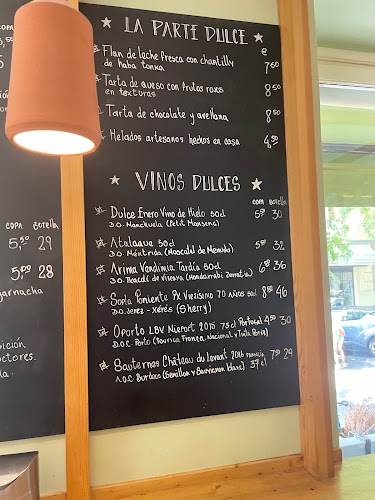 LA PARTE DULCE
€
Flan de leche fresca con chantilly
de haba tonka 7,50
Tarta de queso con frutos rojos
en texturas 8,50
Tarta de chocolate y avellana 8,50
Helados artesanos hechos en casa 4,50
VINOS DULCES
COPA BOTELLA
Dulce Enero Vino de Hielo 50cl 5,50 30
D.O. Manchuela (Petit Manseng)
Atalaque 50cl 5,50 32
D.O. Méntrida (Moscatel de Menudo)
Arima Vendimia Tardía 50cl 6,50 36
D.O. Txacolí de Vizcaya (Hondarrabi Zerratia)
Poniente PX Viejísimo 70 años 50cl 8,50 46
D.O. Jerez - Xérès (Sherry)
Oporto LBV Niepoort 2015 75cl Portugal 4,50 30
D.O.C. Porto (Touriga Franca, Nacional y Tinta Roriz)
Sauternes Château du Levant 2016 Francia 7,50 29
A.O.C. Burdeos (Semillon y Sauvignon blanc) 37cl
COPA BOTELLA
5,50 29
5,50 28
garnacha